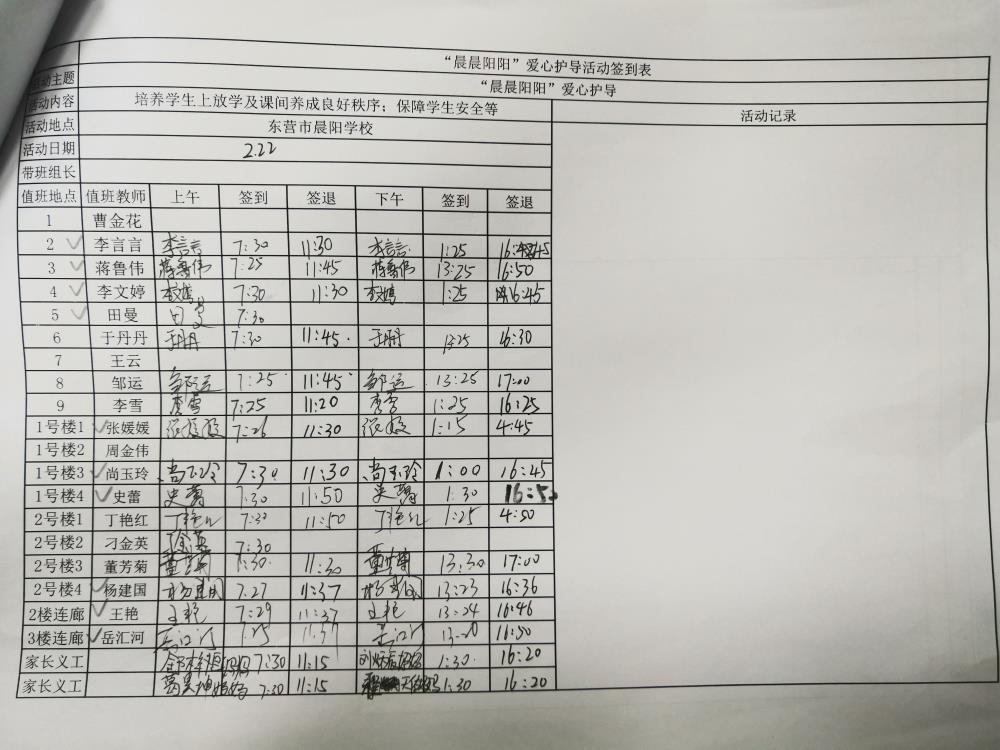 “晨晨阳阳”爱心护导活动签到表
活动主题 “晨晨阳阳”爱心护导
活动内容 培养学生上放学及课间养成良好秩序；保障学生安全等 活动记录
活动地点 东营市晨阳学校
活动日期 2.22
带班组长
值班地点 值班教师 上午 签到 签退 下午 签到 签退
1 曹金花
2 李言言 李言言 7:30 11:30 李言言 1:25 16:45
3 蒋鲁伟 蒋鲁伟 7:25 11:45 蒋鲁伟 13:25 16:50
4 李文婷 李文婷 7:30 11:30 李文婷 1:25 16:45
5 田曼 田曼 7:30
6 于丹丹 于丹丹 7:30 11:45 于丹丹 13:25 16:30
7 王云
8 邹运 邹运 7:25 11:45 邹运 13:25 17:00
9 李雪 李雪 7:25 11:20 李雪 1:25 16:25
1号楼1 张媛媛 张媛媛 7:26 11:30 张媛 1:15 4:45
1号楼2 周金伟
1号楼3 尚玉玲 尚玉玲 7:30 11:30 尚玉玲 1:00 16:45
1号楼4 史蕾 史蕾 7:30 11:50 史蕾 1:30
2号楼1 丁艳红 丁艳红 7:30 11:50 丁艳红 1:25 4:50
2号楼2 刁金英 7:30
2号楼3 董芳菊 董芳菊 11:30 董芳菊 13:30 17:00
2号楼4 杨建国 杨建国 7:27 11:37 杨建国 13:23 16:36
2楼连廊 王艳 王艳 7:29 11:37 王艳 13:24 16:46
3楼连廊 岳汇河 岳江河 11:37 13:20 16:50
家长义工 妈妈 7:30 11:15 1:30 16:20
家长义工 7:30 11:15 1:30 16:20